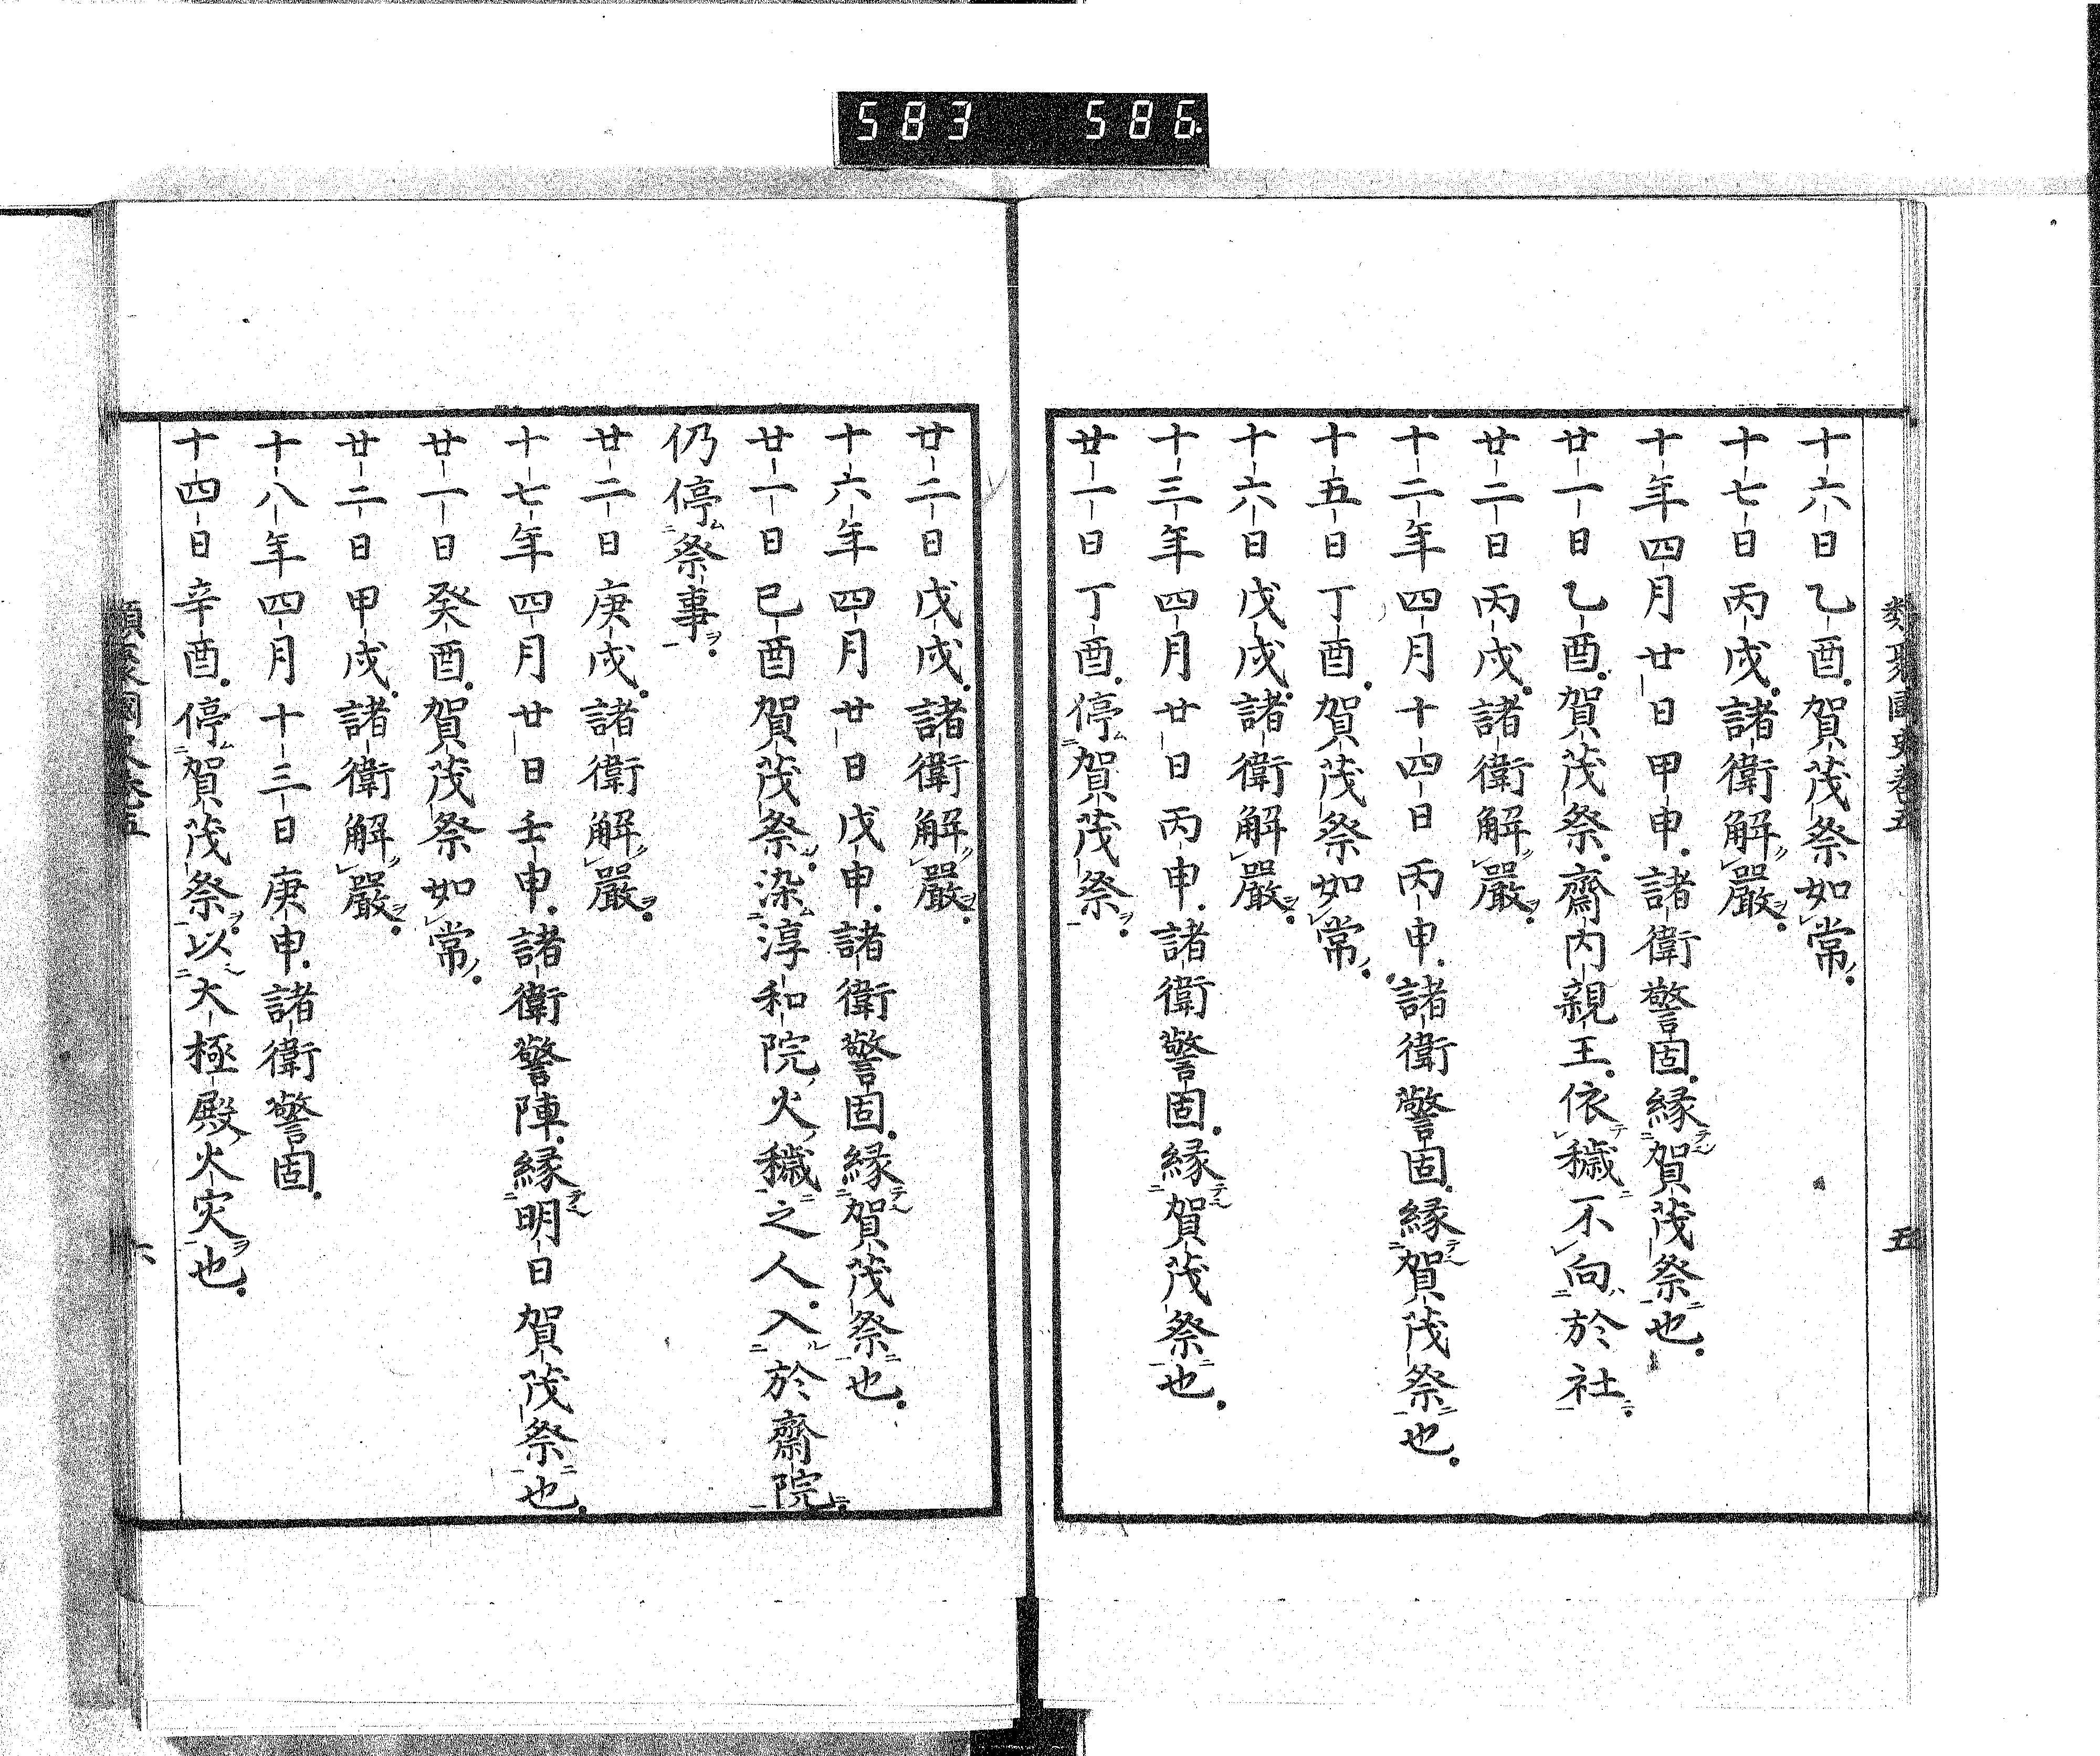 583 586
類聚國史卷五 五
十六日乙酉賀茂祭如常
十七日丙戌諸衛解嚴
十年四月廿日甲申諸衛警固緣賀茂祭也
廿一日乙酉賀茂祭齋内親王依穢不向於社
廿二日丙戌諸衛解嚴
十二年四月十四日丙申諸衛警固緣賀茂祭也
十五日丁酉賀茂祭如常
十六日戊戌諸衛解嚴
十三年四月廿日丙申諸衛警固緣賀茂祭也
廿一日丁酉停賀茂祭
廿二日戊戌諸衛解嚴
十六年四月廿日戊申諸衛警固緣賀茂祭也
廿一日己酉賀茂祭染淳和院火穢之人入於齋院
仍停祭事
廿二日庚戌諸衛解嚴
十七年四月廿日壬申諸衛警陣緣明日賀茂祭也
廿一日癸酉賀茂祭如常
廿二日甲戌諸衛解嚴
十八年四月十三日庚申諸衛警固
十四日辛酉停賀茂祭以大極殿火灾也
類聚國史卷五 六